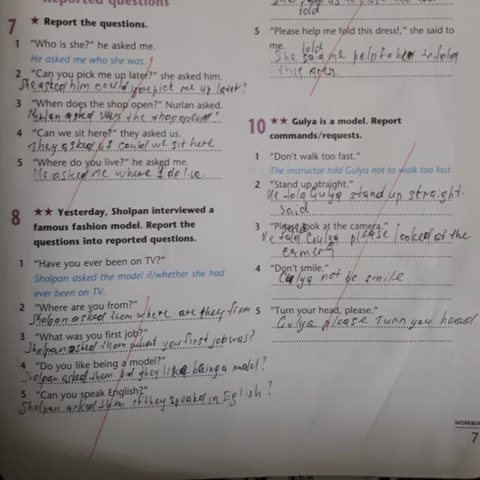 Reported questions
7 ★ Report the questions.
1 "Who is she?" he asked me.
He asked me who she was.
2 "Can you pick me up later?" she asked him.
She asked him could you pick me up later?
3 "When does the shop open?" Nurlan asked.
Nurlan asked when the shop opens?
4 "Can we sit here?" they asked us.
They asked us could we sit here
5 "Where do you live?" he asked me.
He asked me where I do live.
8 ★★ Yesterday, Sholpan interviewed a
famous fashion model. Report the
questions into reported questions.
1 "Have you ever been on TV?"
Sholpan asked the model if/whether she had
ever been on TV.
2 "Where are you from?"
Sholpan asked them where are they from
3 "What was you first job?"
Sholpan asked them what you first job was?
4 "Do you like being a model?"
Sholpan asked them they like being a model?
5 "Can you speak English?"
Sholpan asked them if they speaked in Eglish?
told
5 "Please help me fold this dress!," she said to
me. told
She said me help to her to fold
this
10 ★★ Gulya is a model. Report
commands/requests.
1 "Don't walk too fast."
The instructor told Gulya not to walk too fast.
2 "Stand up straight."
He told Gulya stand up straight.
said
3 "Please look at the camera."
He told Gulya please looked at the
4 "Don't smile."
Gulya not be smile
5 "Turn your head, please."
Gulya please turn you head
WORKBOOK
7